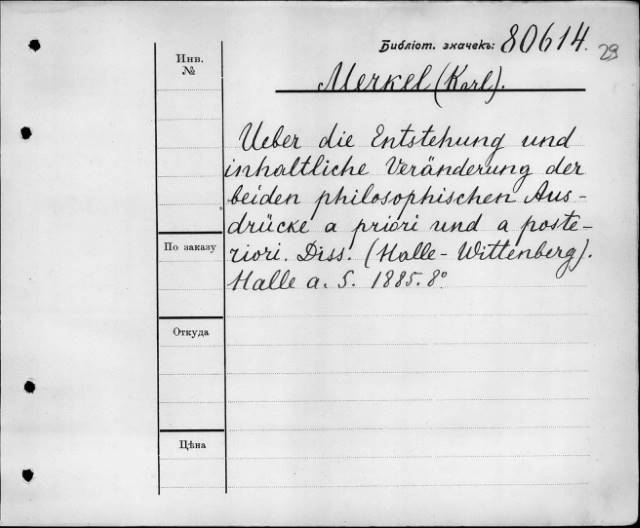 Библіот. значекъ: 80614.
29
Инв.
№
Merkel (Karl).
Ueber die Entstehung und
inhaltliche Veränderung der
beiden philosophischen Aus-
drücke a priori und a poste-
riori. Diss. (Halle-Wittenberg).
Halle a. S. 1885. 8º
По заказу
Откуда
Цѣна